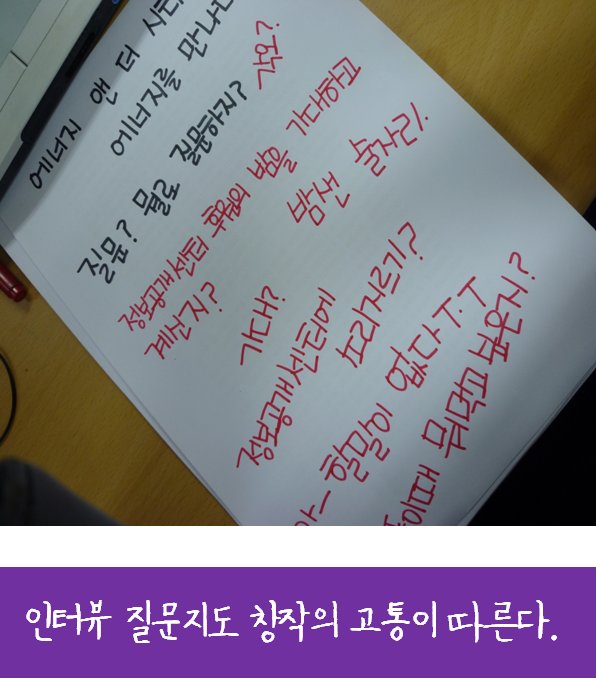 에너지 앤 더 시티
에너지를 만나다
질문? 뭘로 질문하지? 각오?
정보공개센터 후원의 밤을 기대하고
계신지? 밤샌 술자리!
기대?
정보공개센터에 프리지르기?
아- 할말이 없다 T.T
뭐먹고 싶은지?
인터뷰 질문지도 창작의 고통이 따른다.